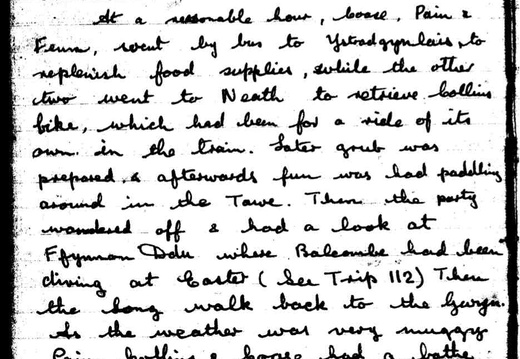 At a reasonable hour, Coase, Pain &
Fenn, went by bus to Ystradgynlais, to
replenish food supplies, while the other
two went to Neath to retrieve Collins
bike, which had been for a ride of its
own in the train. Later grub was
prepared & afterwards fun was had paddling
around in the Tawe. Then the party
wandered off & had a look at
Ffynnon Ddu where Balcombe had been
diving at Easter (See Trip 112) Then
the long walk back to the Gwyn.
As the weather was very muggy
Pain, Collins & Coase had a bathe